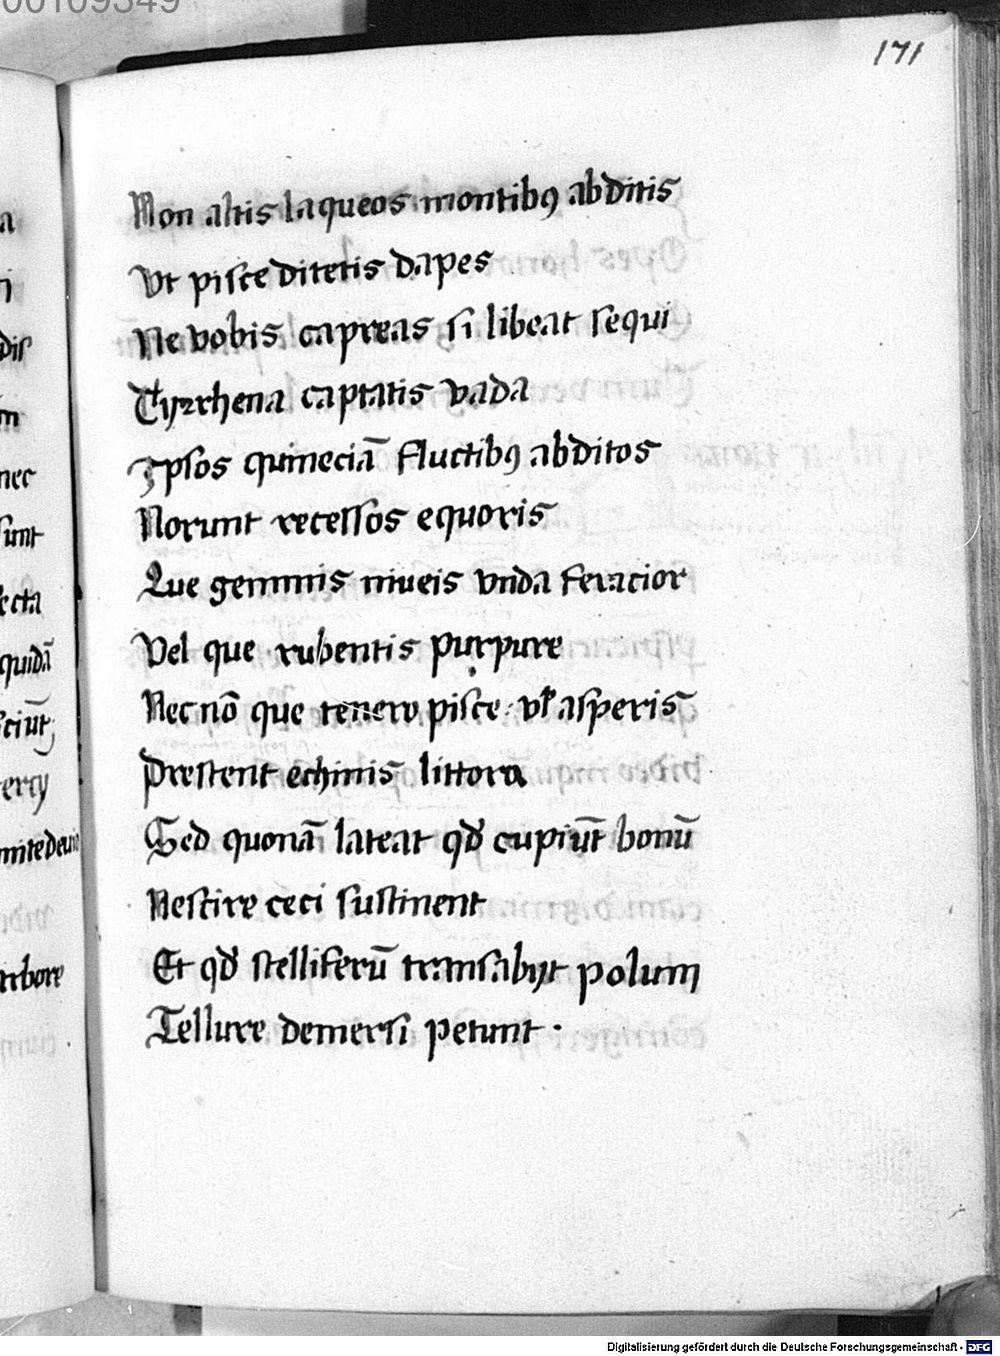 00109349
171
Non altis laqueos montibꝯ abditis
Vt pisce ditetis dapes
Ne vobis capreas si libeat sequi
Tyrrhena captatis vada
Ipsos quineciā fluctibꝯ abditos
Norunt recessos equoris
Que gemmis niueis vnda feracior
Vel que rubentis purpure
Nec nō que tenero pisce vꝉ asperis
Prestent echinis littora
Sed quonā lateat qđ cupiūt bonū
Nescire ceci sustinent
Et qđ stelliferū transabijt polum
Tellure demersi petunt ·
a
dis
m
nec
sunt
ecta
quidā
sciūt
arbore
Digitalisierung gefördert durch die Deutsche Forschungsgemeinschaft - DFG